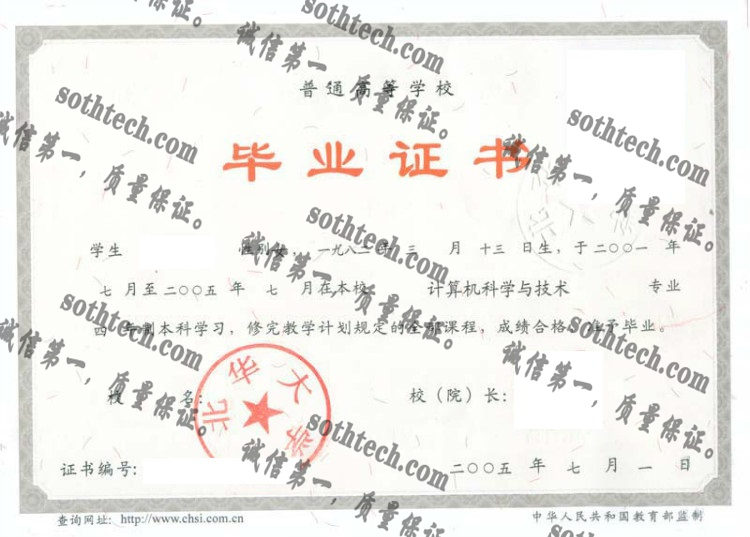 普通高等学校
毕业证书
学生 性别女，一九八二年 三 月 十三 日生，于二〇〇一 年
七 月至二〇〇五 年 七 月在本校 计算机科学与技术 专业
四 年制本科学习，修完教学计划规定的全部课程，成绩合格，准予毕业。
校 名： 校（院）长：
北华大学
证书编号： 二〇〇五 年 七 月 一 日
查询网址：http://www.chsi.com.cn 中华人民共和国教育部监制
sothtech.com
诚信第一，质量保证。
sothtech.com
诚信第一，质量保证。
sothtech.com
诚信第一，质量保证。
sothtech.com
诚信第一，质量保证。
sothtech.com
诚信第一，质量保证。
sothtech.com
诚信第一，质量保证。
sothtech.com
诚信第一，质量保证。